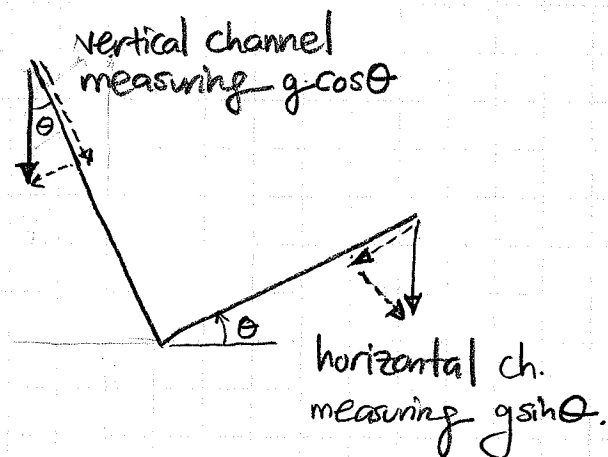 vertical channel
measuring g·cosθ
θ
θ
horizontal ch.
measuring gsinθ.